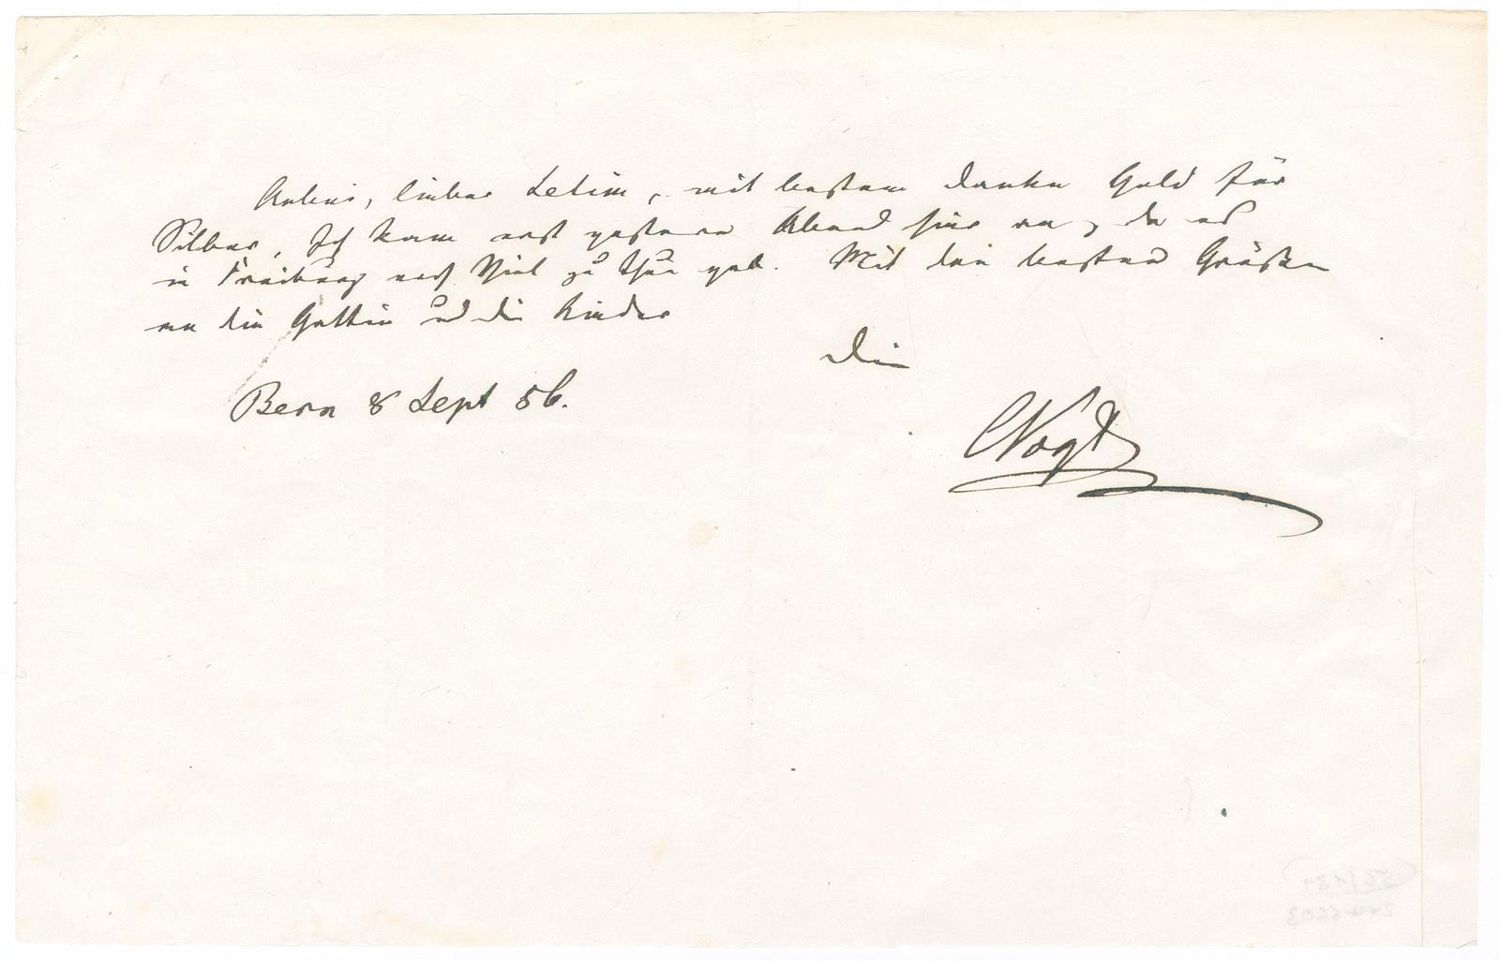 Anbei, lieber Letim, mit bestem Danke Gold für
Silber. Ich kam erst gestern Abend hier an, da es
in Freiburg noch Viel zu thun gab. Mit den besten Grüßen
an die Gattin und die Kinder
Dein
Bern 8 Sept 56.
CVogt